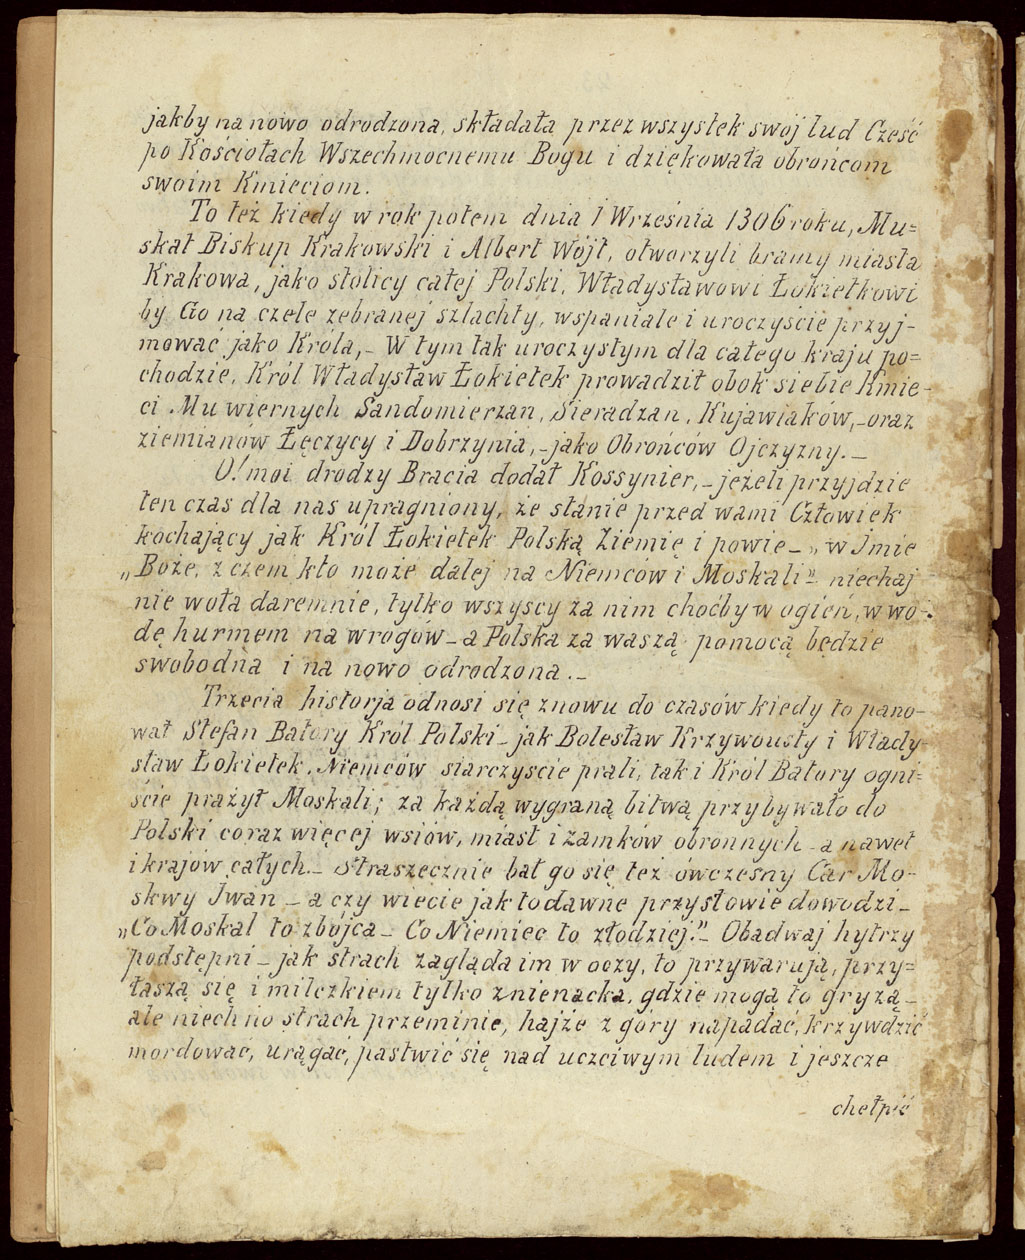 jakby na nowo odrodzona, składała przez wszystek swój lud Cześć
po Kościołach Wszechmocnemu Bogu i dziękowała obrońcom
swoim Kmieciom.
To też kiedy w rok potem dnia 1 Września 1306 roku, Mu=
skat Biskup Krakowski i Albert Wójt, otworzyli bramy miasta
Krakowa, jako stolicy całej Polski, Władysławowi Łokietkowi
by Go na czele zebranej szlachty, wspaniale i uroczyście przyj-
mować jako Króla,- W tym tak uroczystym dla całego kraju po=
chodzie, Król Władysław Łokietek prowadził obok siebie Kmie-
ci Mu wiernych Sandomierzan, Sieradzan, Kujawiaków,- oraz
ziemianów Łęczycy i Dobrzynia,- jako Obrońców Ojczyzny._
O! moi drodzy Bracia dodał Kossynier,- jeżeli przyjdzie
ten czas dla nas upragniony, że stanie przed wami Człowiek
kochający jak Król Łokietek Polską Ziemię i powie- „w Jmie
„Boże, z czem kto może dalej na Niemców i Moskali"- niechaj
nie woła daremnie, tylko wszyscy za nim choćby w ogień, w wo-
dę hurmem na wrogów- a Polska za waszą pomocą będzie
swobodna i na nowo odrodzona._
Trzecia historja odnosi się znowu do czasów kiedy to pano-
wał Stefan Batory Król Polski- jak Bolesław Krzywousty i Włady-
sław Łokietek, Niemców siarczyscie prali, tak i Król Batory ogni=
ście prażył Moskali; za każdą wygraną bitwą przybywało do
Polski coraz więcej wsiów, miast i zamków obronnych- a nawet
i krajów całych._ Straszecznie bał go się też ówczesny Car Mo-
skwy Jwan - a czy wiecie jak to dawne przysłowie dowodzi-
„Co Moskal to zbójca- Co Niemiec to złodziej."- Obadwaj hytrzy
podstępni- jak strach zagląda im w oczy, to przywarują, przy=
łaszą się i milczkiem tylko znienacka, gdzie mogą to gryzą-
ale niech no strach przeminie, hajże z góry napadać, krzywdzić
mordować, urągać, pastwić się nad uczciwym ludem i jeszcze
chełpić